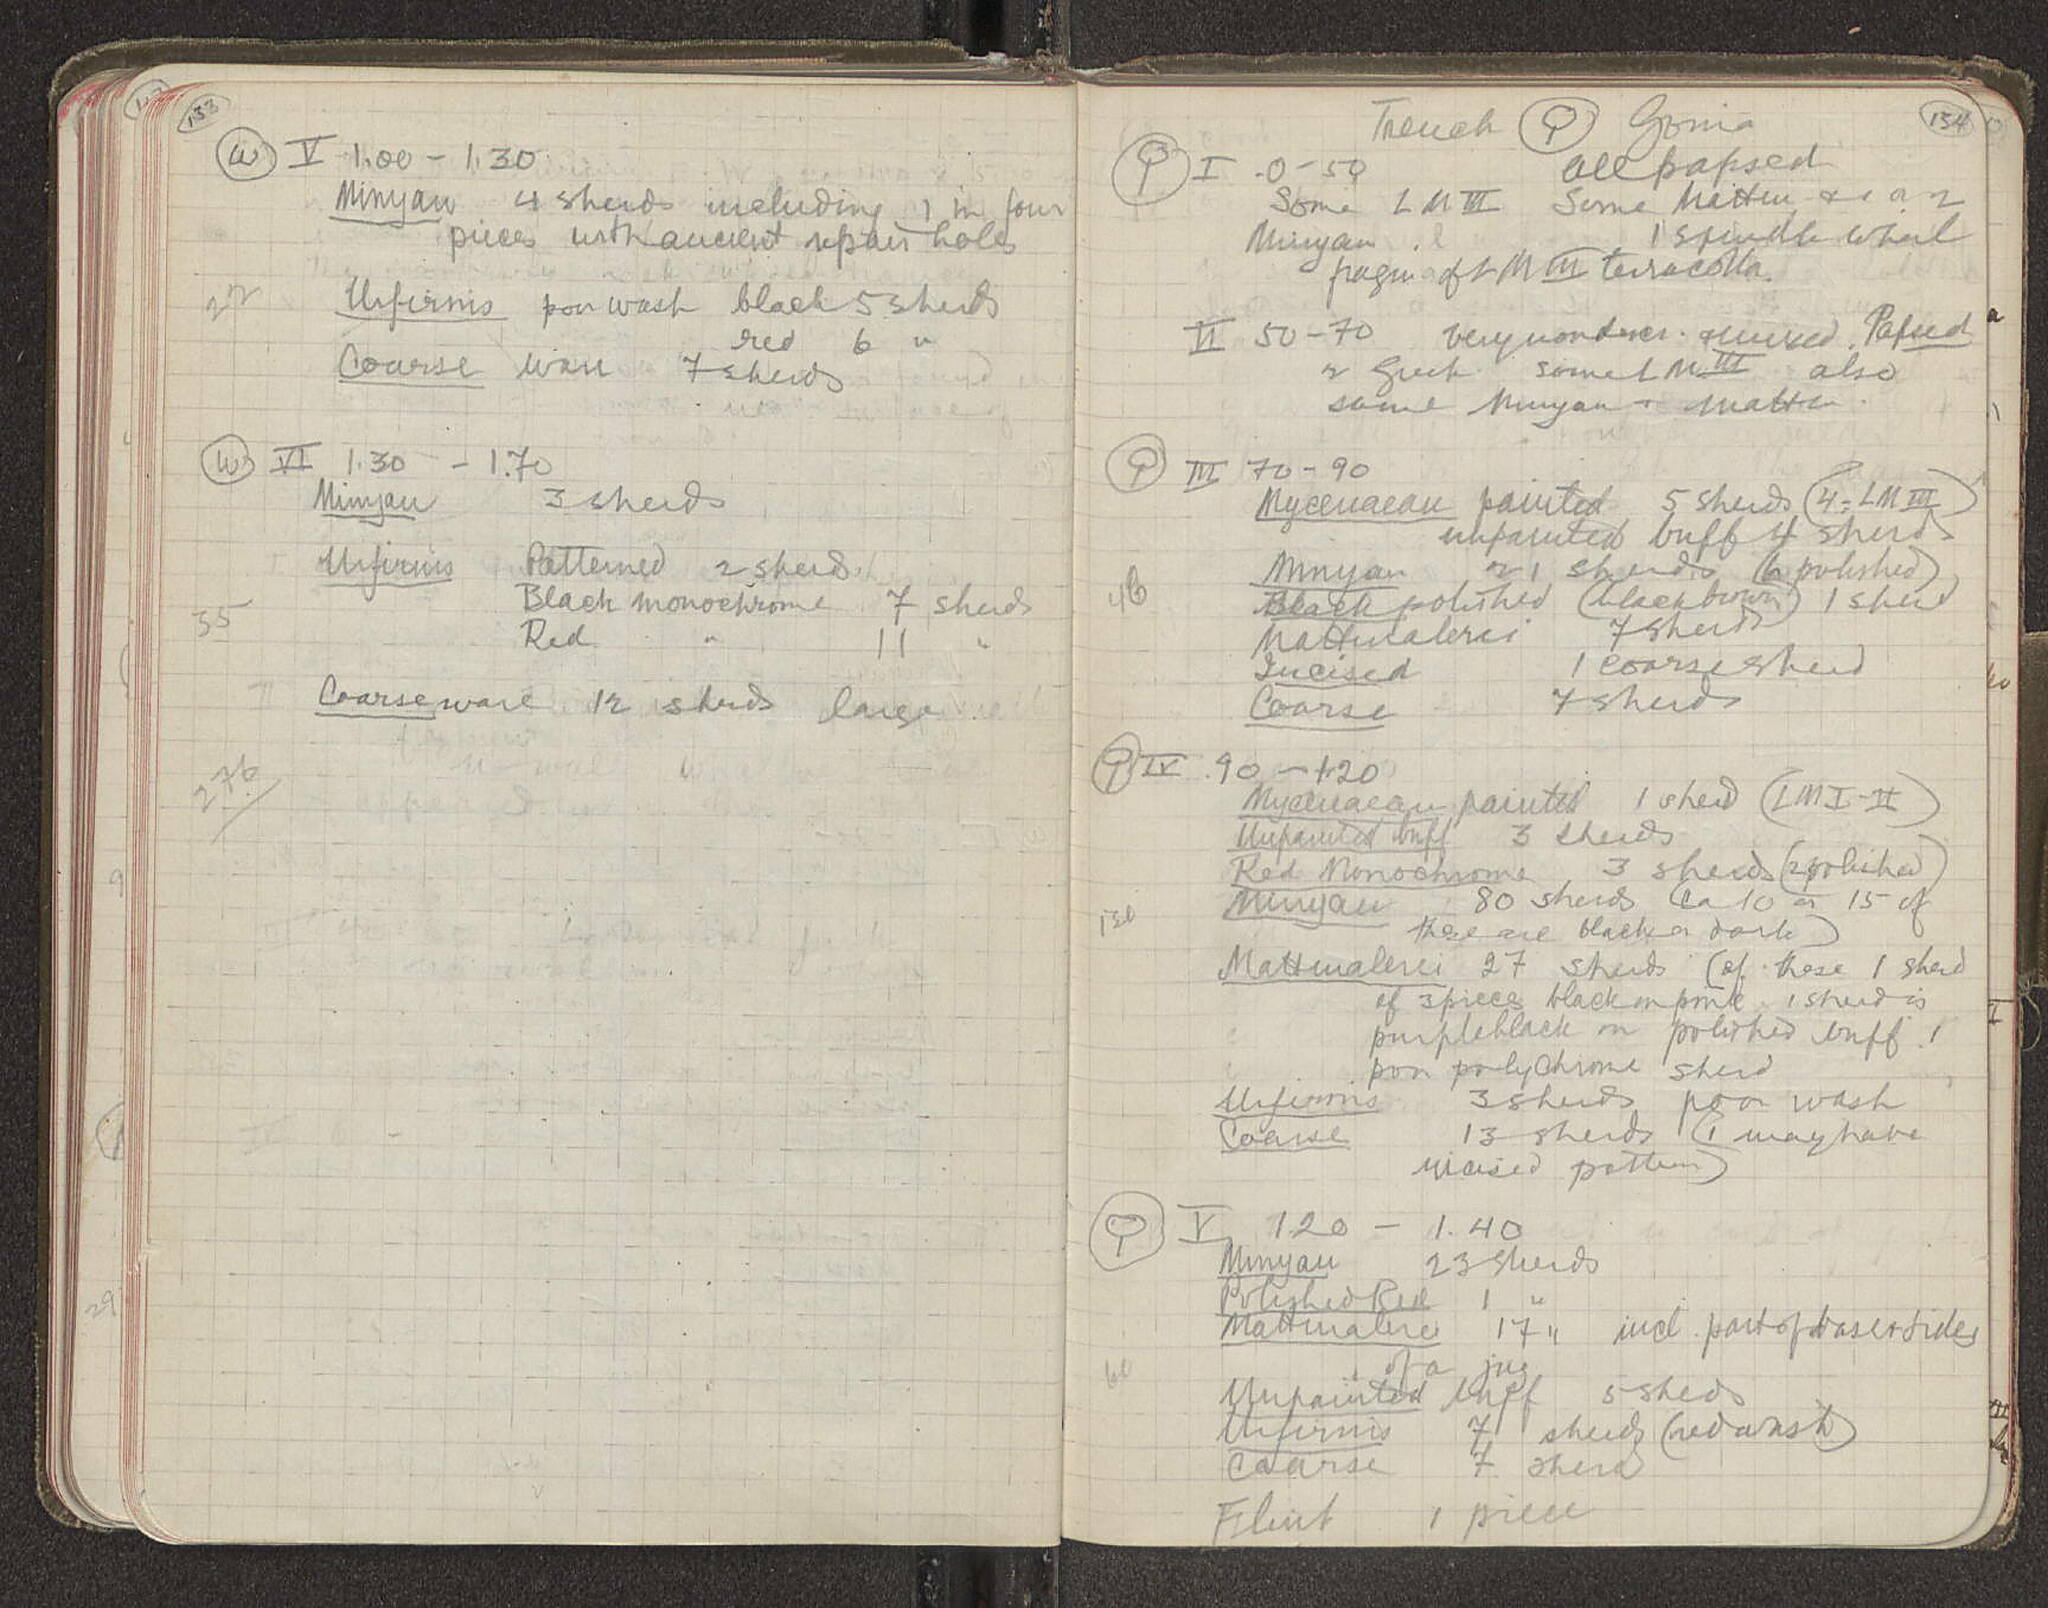 133
W V 1.00 - 1.30
Minyan 4 sherds including 1 in four
pieces with ancient repair holes
22
Urfirnis poor wash black 5 sherds
red 6 "
Coarse ware 7 sherds
W VI 1.30 - 1.70
Minyan 3 sherds
Urfirnis Patterned 2 sherds
Black monochrome 7 sherds
35
Red " 11 "
Coarse ware 12 sherds large
276
134
Trench Q Gonia
Q I .0-50 all papsed
Some LM III Some Matten
Minyan. 1 spindle whorl
fragm of LM III terracotta.
II 50-70 very mixed. Papsed
2 Greek some LM III also
some Minyan + matten.
Q III 70-90
Mycenaean painted 5 sherds (4 = LM III)
unpainted buff 4 sherds
Minyan 21 sherds (6 polished)
46
Black polished (black brown) 1 sherd
Mattmalerei 7 sherds
Incised 1 coarse sherd
Coarse 7 sherds
Q IV .90 - 1.20
Mycenaean painted 1 sherd (LM I-II)
Unpainted buff 3 sherds
Red Monochrome 3 sherds (2 polished)
Minyan 80 sherds (ca 10 or 15 of
130
these are black or dark)
Mattmalerei 27 sherds (of these 1 sherd
of 3 pieces black on pink 1 sherd is
purple black on polished buff. 1
poor polychrome sherd
Urfirnis 3 sherds poor wash
Coarse 13 sherds (1 may have
incised pattern)
Q V 1.20 - 1.40
Minyan 23 sherds
Polished Red 1 "
Mattmalerei 17 " incl. part of base + sides
of a jug
60
Unpainted buff 5 sherds
Urfirnis 7 sherds (red wash)
Coarse 7 sherd
Flint 1 piece